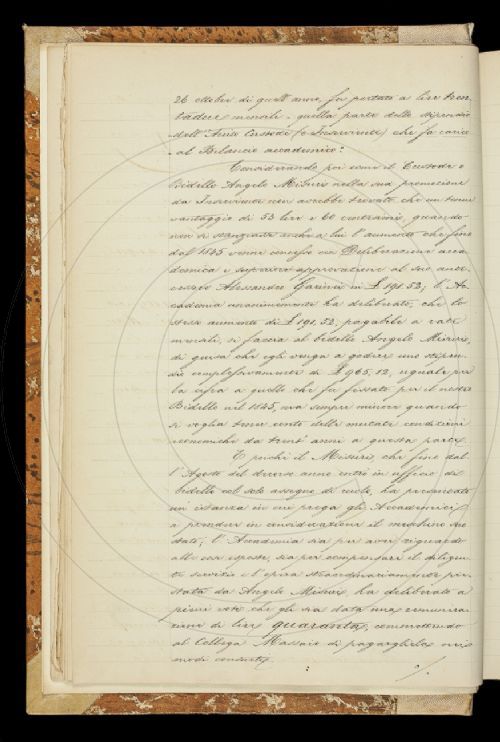 26 ottobre di quell'anno, fu portato a lire tren
tadue mensili quella parte dello stipendio
dell' Custode (e Inserviente) che fa carico
al Bilancio accademico:
Considerando poi come il Custode e
Bidello Angelo Misuri nella sua promozione
da Inserviente non avrebbe trovato che un tenue
vantaggio di 53 lire e 60 centesimi, quando
non si anche a lui l'aumento che fino
dal 1845 venne concesso con Deliberazione acca
demica e superiore approvazione al suo ante
cessore Alessandro in £ 191.52; l'Ac
cademia unanimemente ha deliberato, che lo
stesso aumento di £ 191.52, pagabile a rate
mensili, si faccia al bidello Angelo Misuri,
di guisa che egli venga a godere uno stipen
dio complessivamente di £ 965.12, uguale per
la cifra a quello che fu fissato per il nostro
Bidello nel 1845, ma sempre minore quando
si voglia tener conto delle mutate condizioni
economiche da trent'anni a questa parte.
E poichè il Misuri, che fino dal
l'Agosto del decorso anno entrò in ufficio di
bidello col solo assegno di custode, ha presentato
un istanza in cui prega gli Accademici
a prendere in considerazione il meschino suo
stato; l'Accademia sia per aver riguardo
alle cose esposte, sia per compensare il diligen
te servizio e l'opera straordinariamente pre
stata da Angelo Misuri, ha deliberato a
pieni voti che gli sia data una remunera
zione di lire quaranta, commettendo
al Collega Massaio di pagargliela nei
modi consueti.